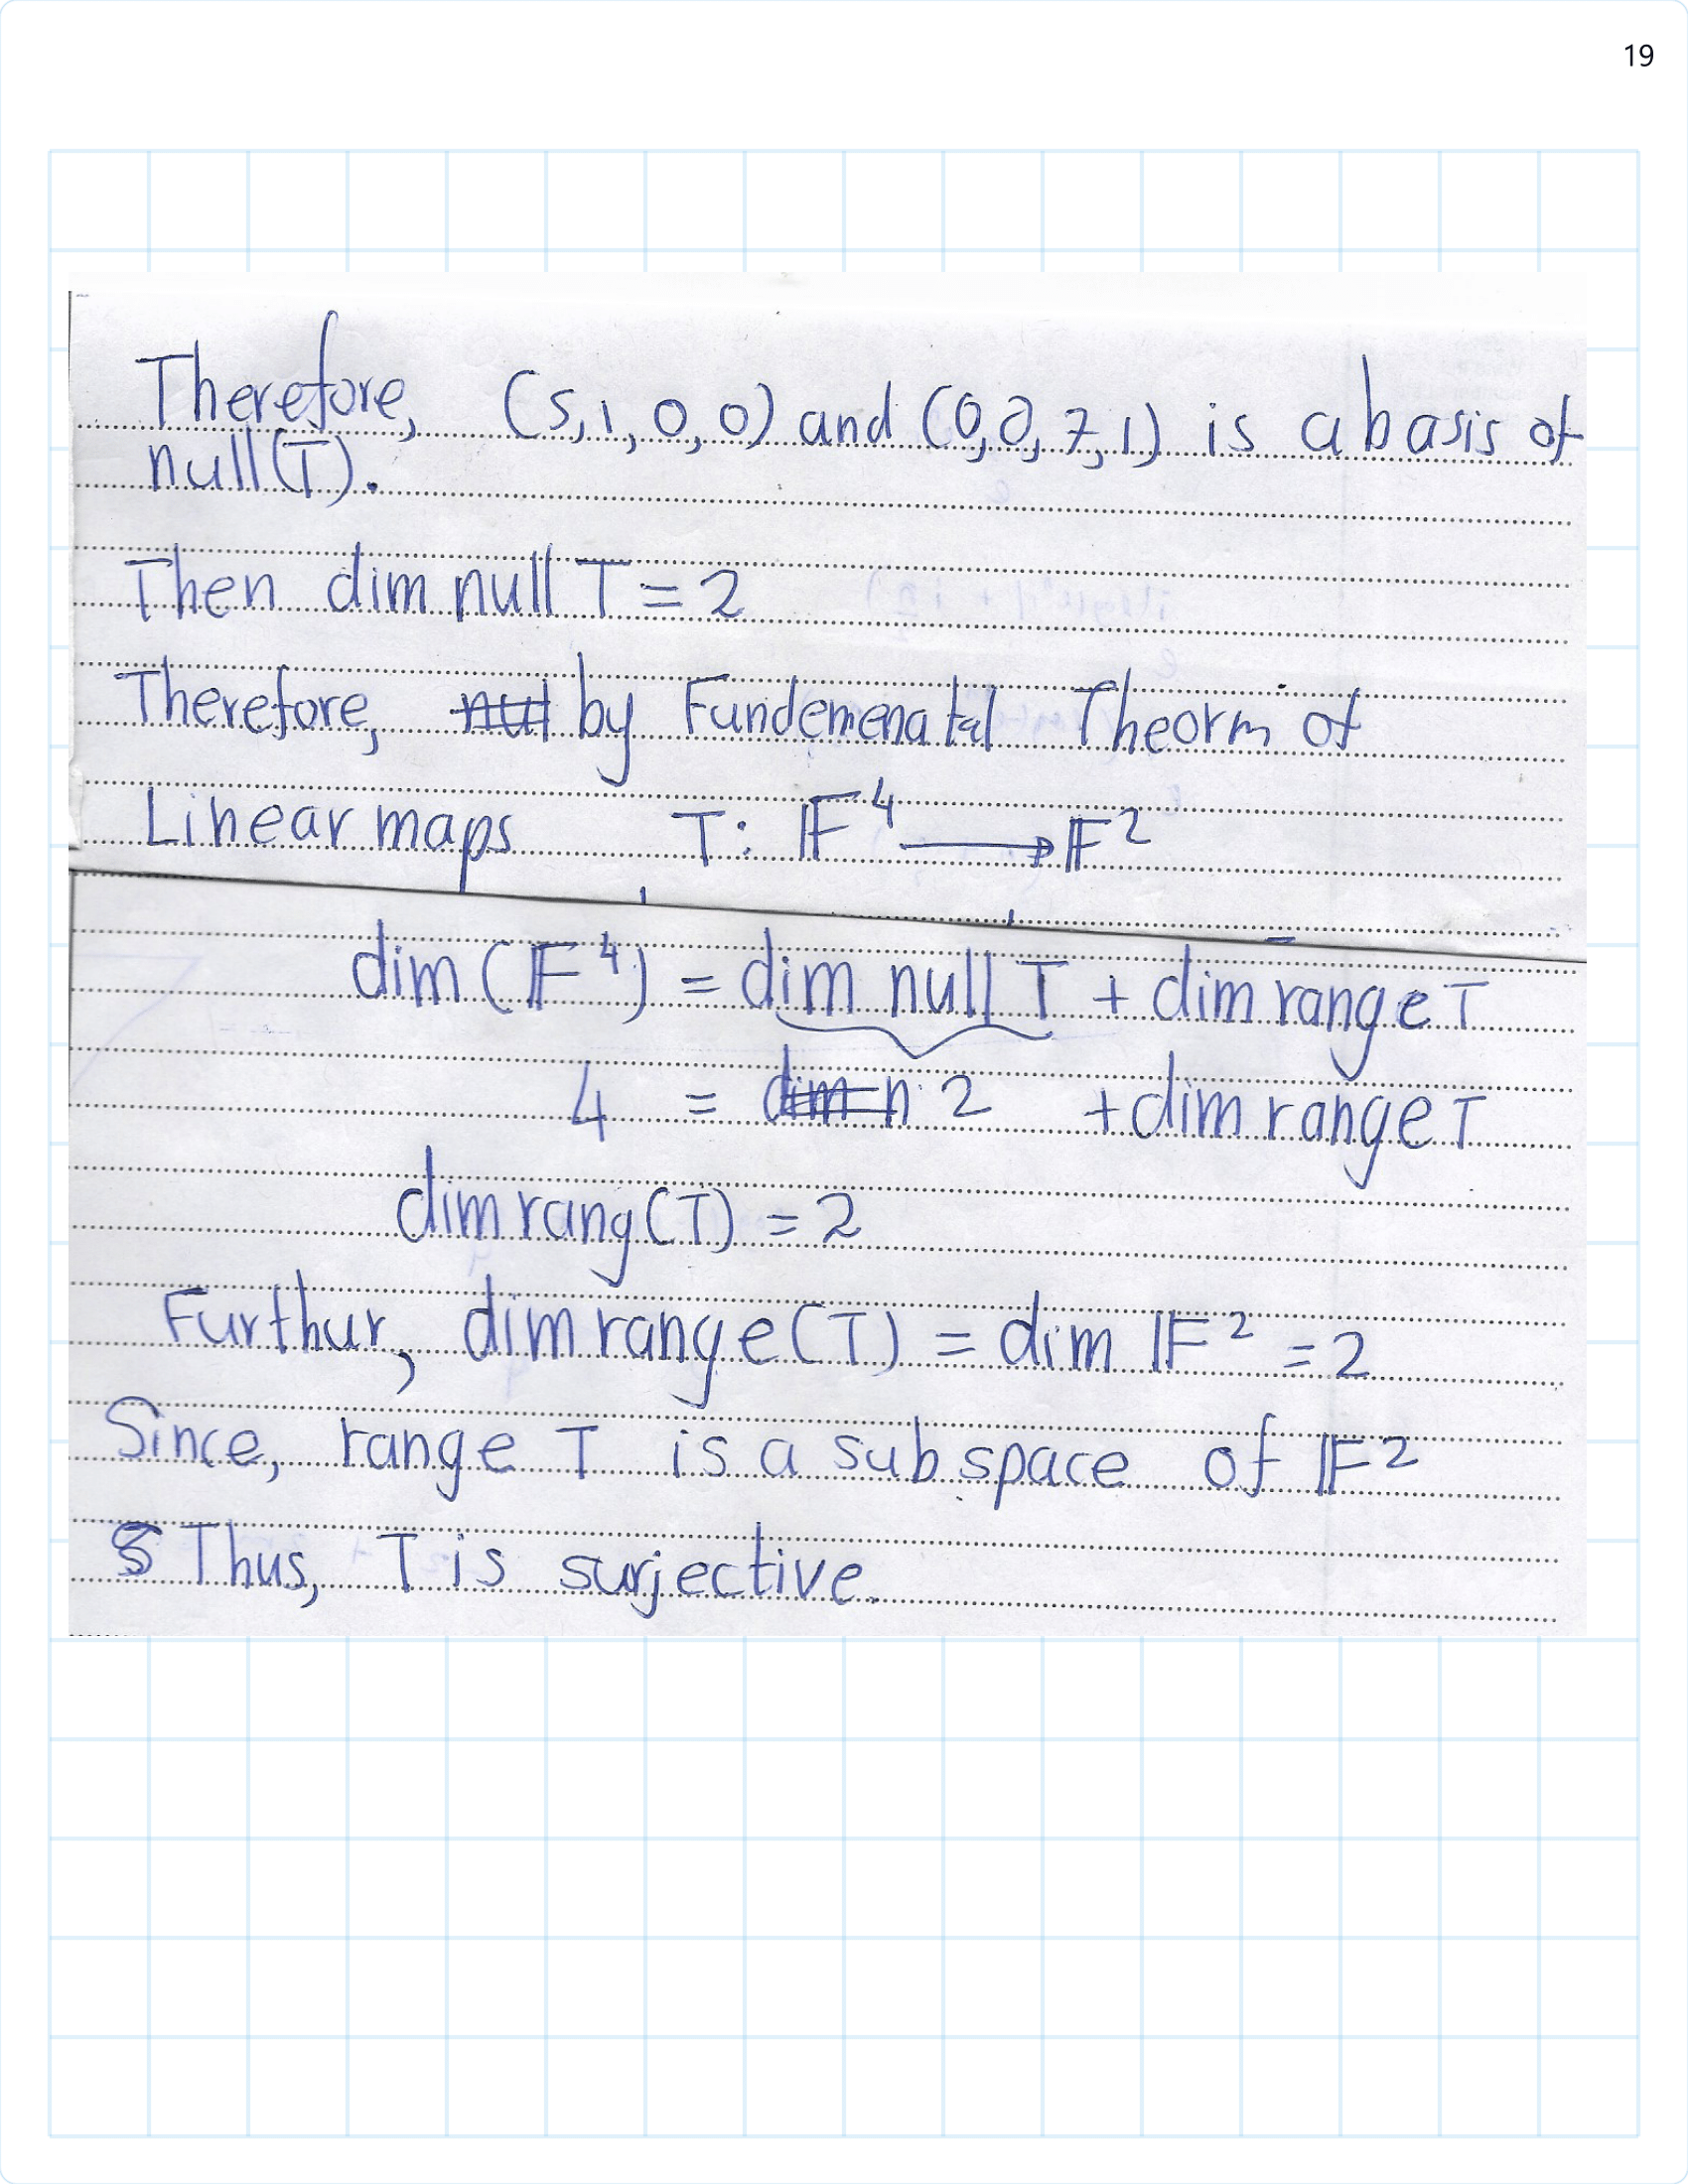 19
Therefore, (5,1,0,0) and (0,0,7,1) is a basis of
null(T).
Then dim null T = 2
Therefore, nul by Fundemenatal Theorm of
Linear maps T: 𝔽⁴ ⟶ 𝔽²
dim (𝔽⁴) = dim null T + dim range T
4 = dim n 2 + dim range T
dim rang(T) = 2
Furthur, dim range(T) = dim 𝔽² = 2
Since, range T is a subspace of 𝔽²
Thus, T is surjective.